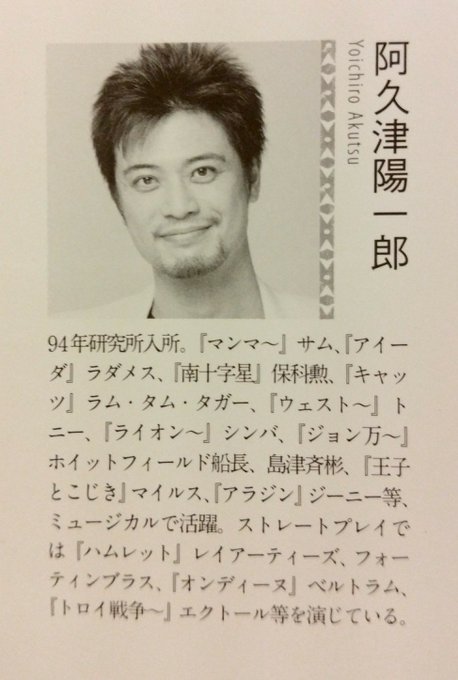 阿久津陽一郎
Yoichiro Akutsu
94年研究所入所。『マンマ〜』サム、『アイー
ダ』ラダメス、『南十字星』保科勲、『キャッ
ツ』ラム・タム・タガー、『ウェスト〜』ト
ニー、『ライオン〜』シンバ、『ジョン万〜』
ホイットフィールド船長、島津斉彬、『王子
とこじき』マイルス、『アラジン』ジーニー等、
ミュージカルで活躍。ストレートプレイで
は『ハムレット』レイアーティーズ、フォー
ティンブラス、『オンディーヌ』ベルトラム、
『トロイ戦争〜』エクトール等を演じている。